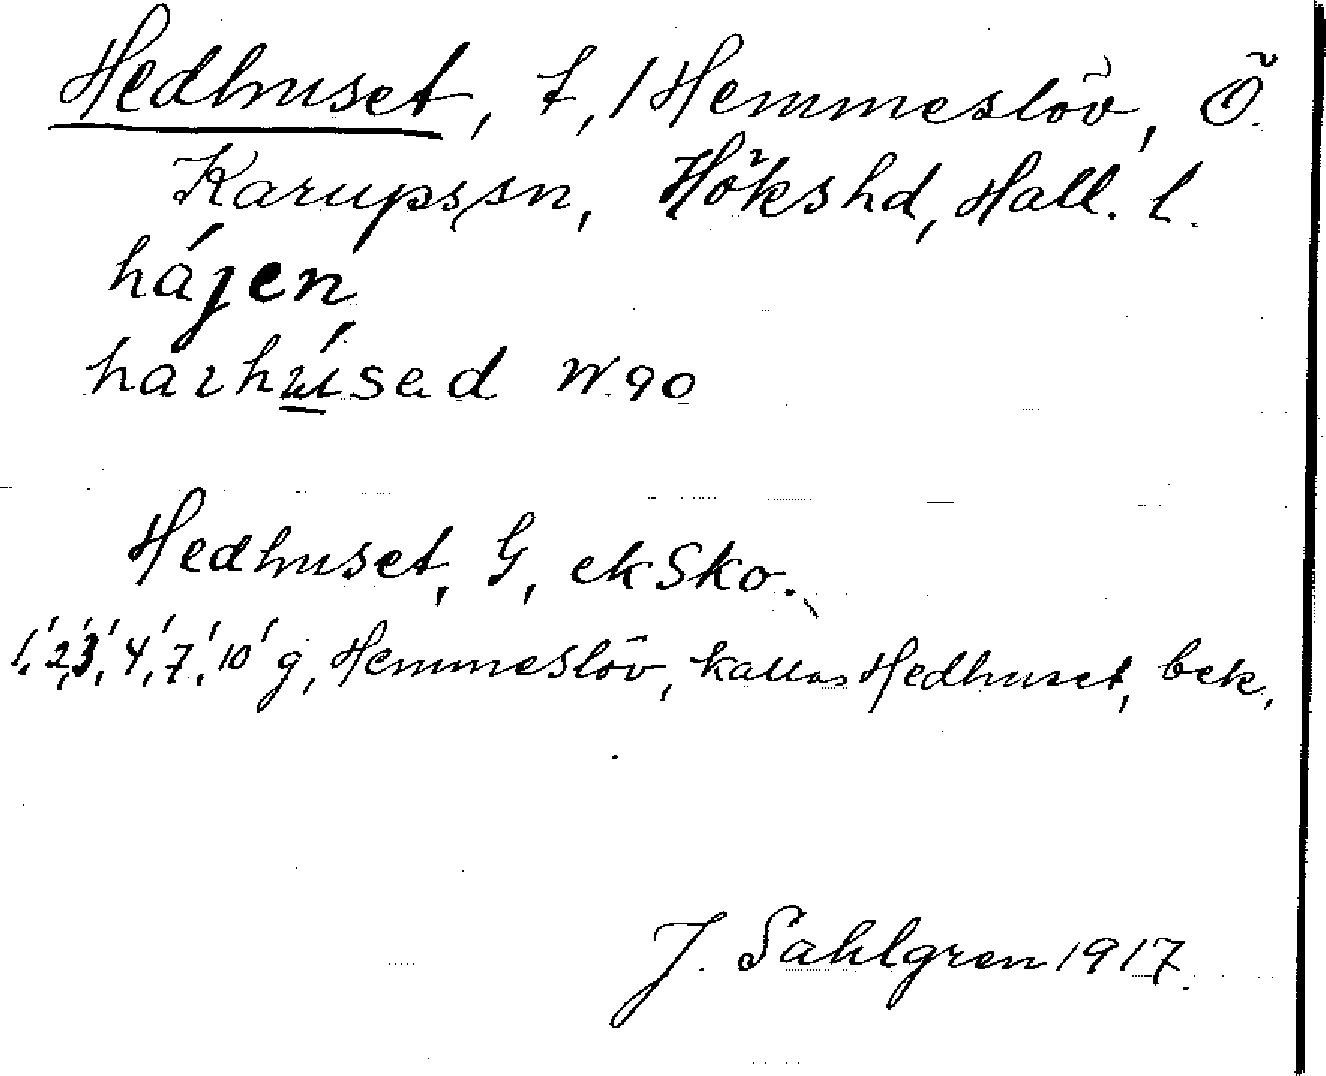 Hedhuset, t, / Hemmeslöv, Ö.
Karupssn, Hökshd, Hall. l.
hájen
harhúsed W.90
Hedhuset, G, ekSko.
1, 2, 3, 4, 7, 10 g, Hemmeslöv, kallas Hedhuset, bek,
J. Sahlgren 1917.